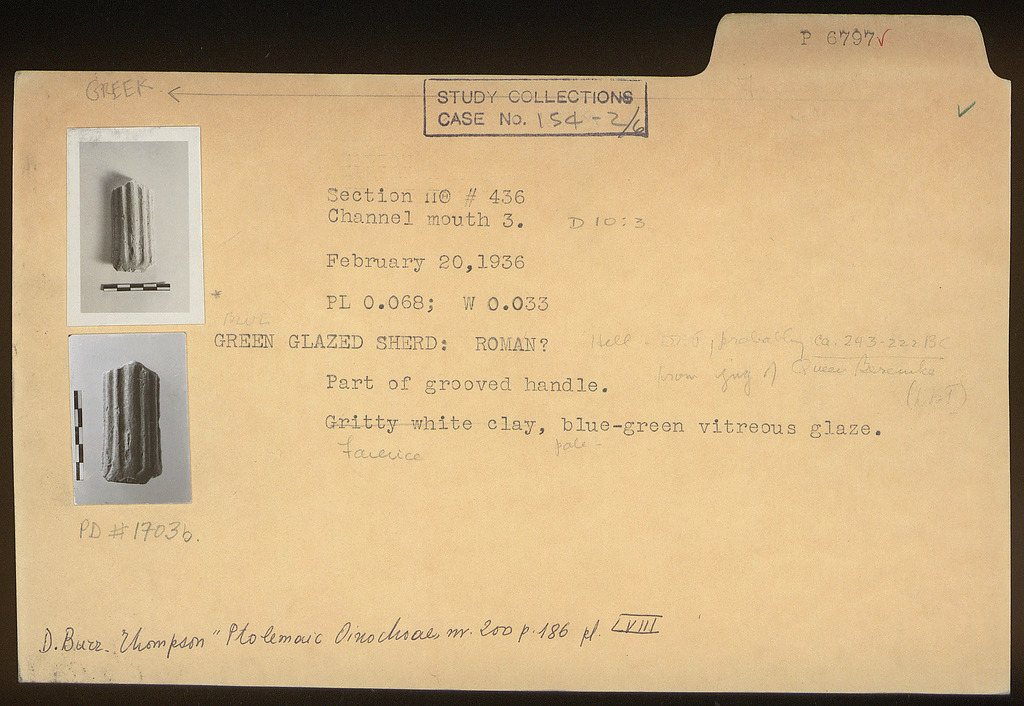 P 6797✓
GREEK ←
STUDY COLLECTIONS
CASE No. 154 - 2/6
Section # 436
Channel mouth 3. D 10:3
February 20,1936
*
PL 0.068; W 0.033
BLUE
GREEN GLAZED SHERD: ROMAN? probably ca. 243-222 BC
Part of grooved handle. from jug of Queen Berenike
Gritty white clay, blue-green vitreous glaze.
Faience pale -
PD # 1703b.
D. Burr. Thompson " Ptolemaic Oinochoae, nr. 200 p. 186 pl. LVIII